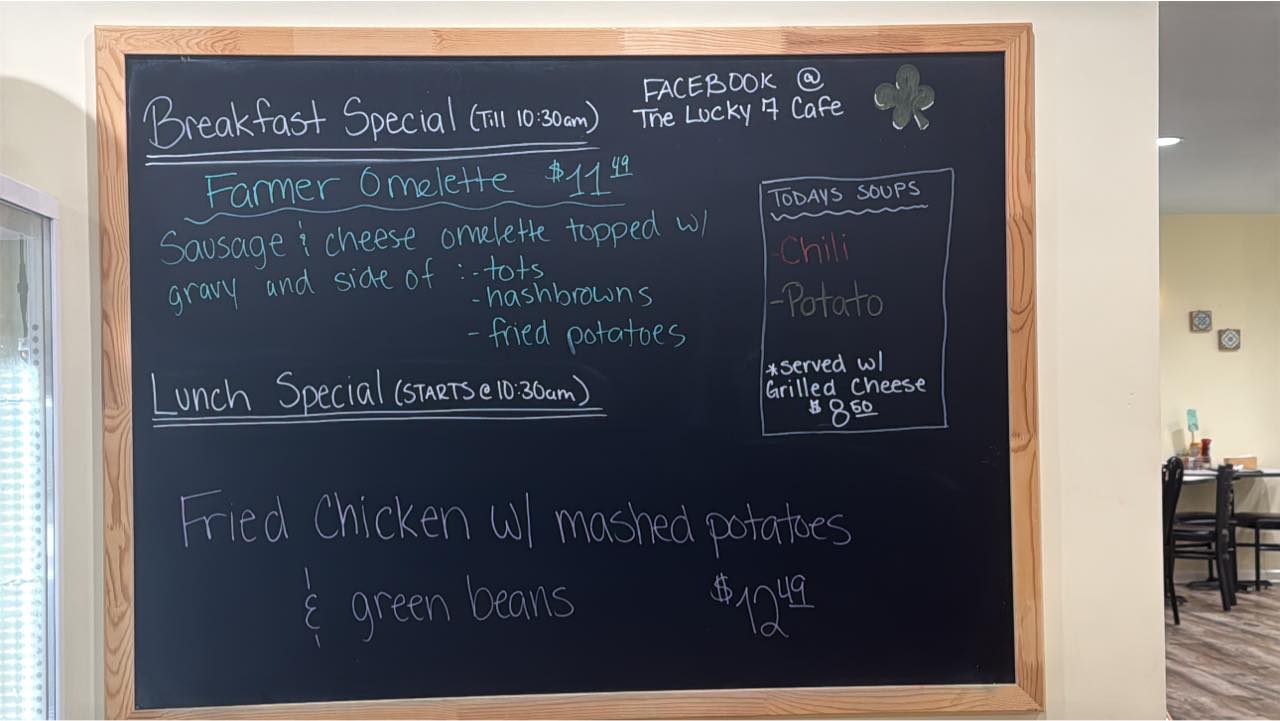 Breakfast Special (Till 10:30am)
FACEBOOK @
The Lucky 7 Cafe
Farmer Omelette $11 49
Sausage & cheese omelette topped w/
gravy and side of :-tots
-hashbrowns
- fried potatoes
TODAYS SOUPS
-Chili
-Potato
*served w/
Grilled Cheese
$8 50
Lunch Special (STARTS @ 10:30am)
Fried Chicken w/ mashed potatoes
& green beans $12 49